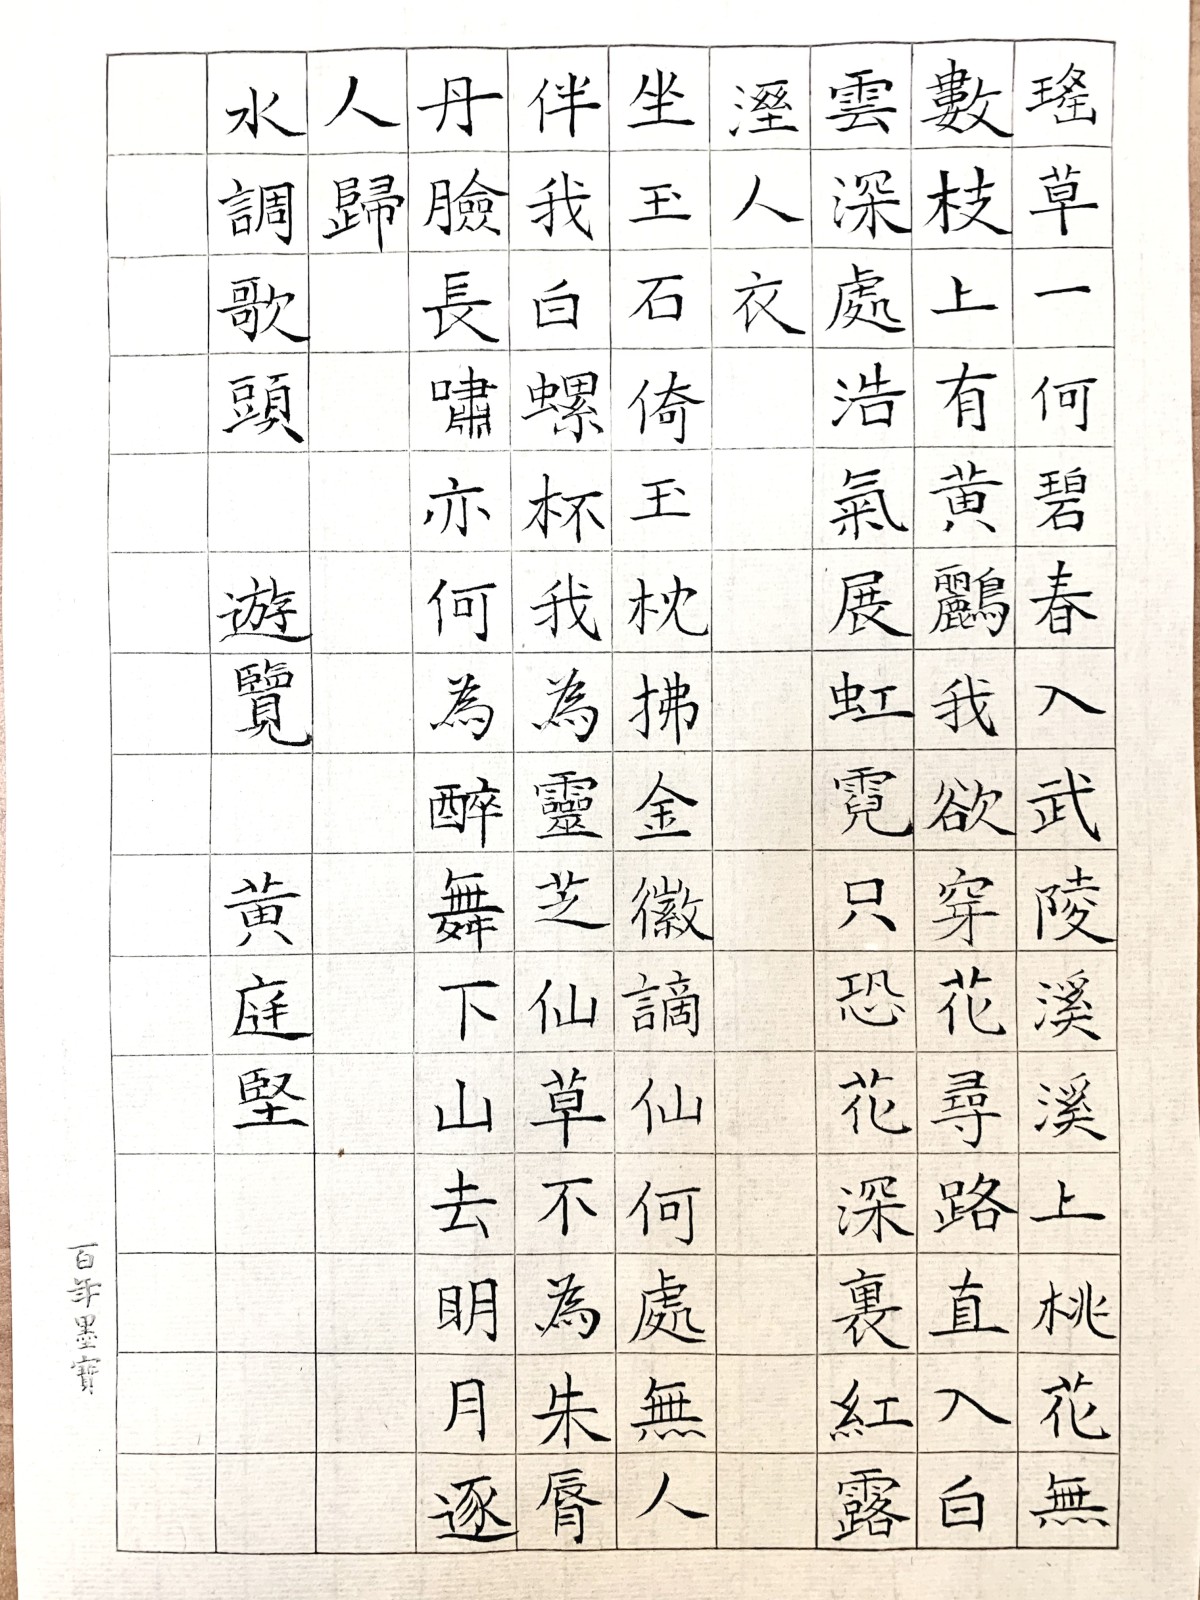 瑤草一何碧春入武陵溪溪上桃花無
數枝上有黃鸝我欲穿花尋路直入白
雲深處浩氣展虹霓只恐花深裏紅露
溼人衣
坐玉石倚玉枕拂金徽謫仙何處無人
伴我白螺杯我為靈芝仙草不為朱脣
丹臉長嘯亦何為醉舞下山去明月逐
人歸
水調歌頭 遊覽 黃庭堅
百年墨寶